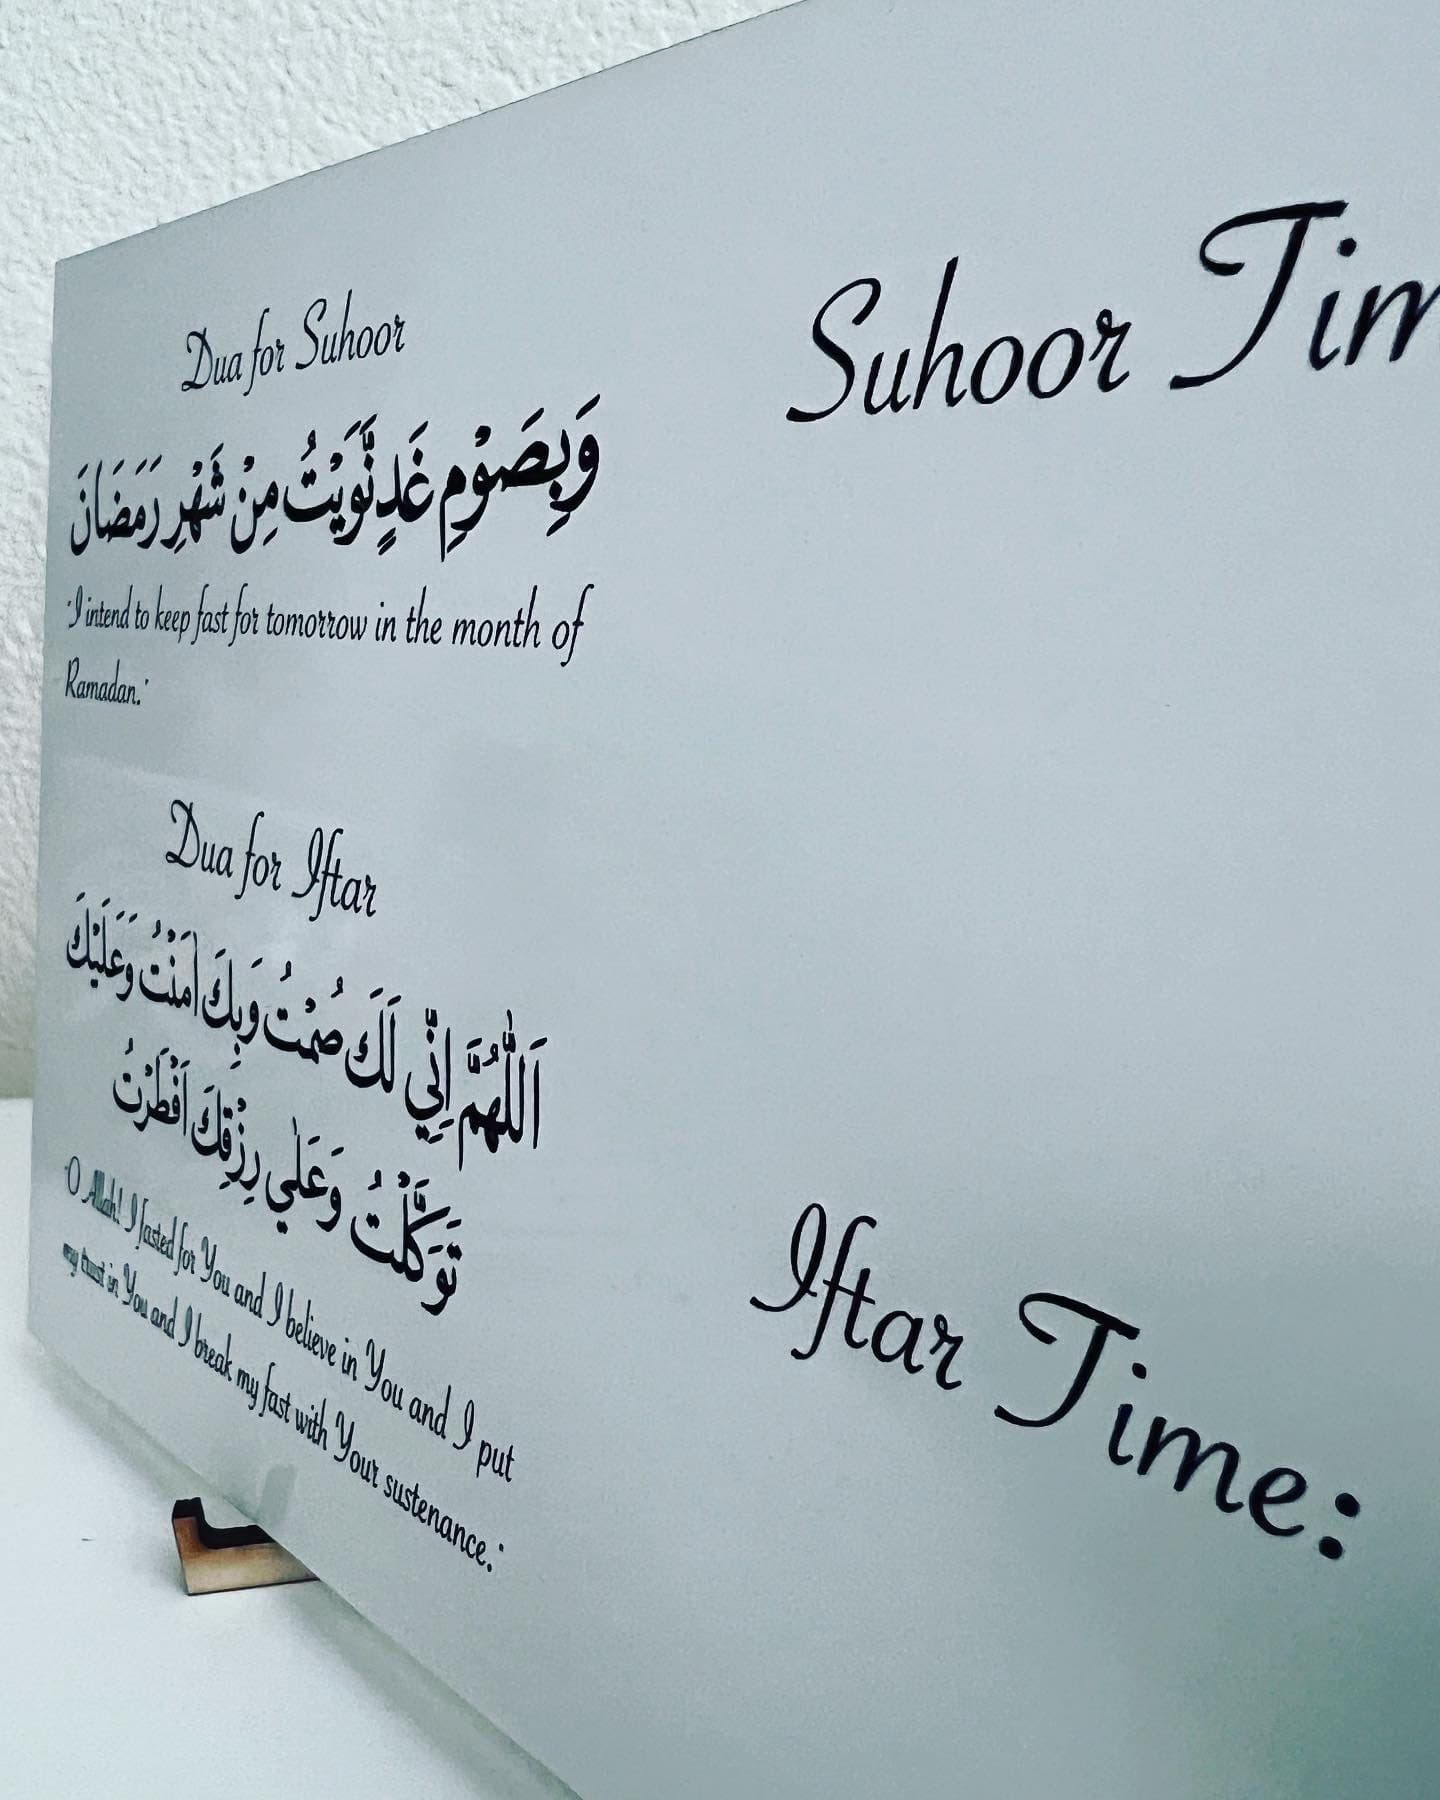 Dua for Suhoor
وَبِصَوْمِ غَدٍ نَّوَيْتُ مِنْ شَهْرِ رَمَضَانَ
"I intend to keep fast for tomorrow in the month of
Ramadan."
Dua for Iftar
اَللّٰهُمَّ اِنِّي لَكَ صُمْتُ وَبِكَ اٰمَنْتُ وَعَلَيْكَ
تَوَكَّلْتُ وَعَلٰي رِزْقِكَ اَفْطَرْتُ
"O Allah! I fasted for You and I believe in You and I put
my trust in You and I break my fast with Your sustenance."
Suhoor Tim
Iftar Time: